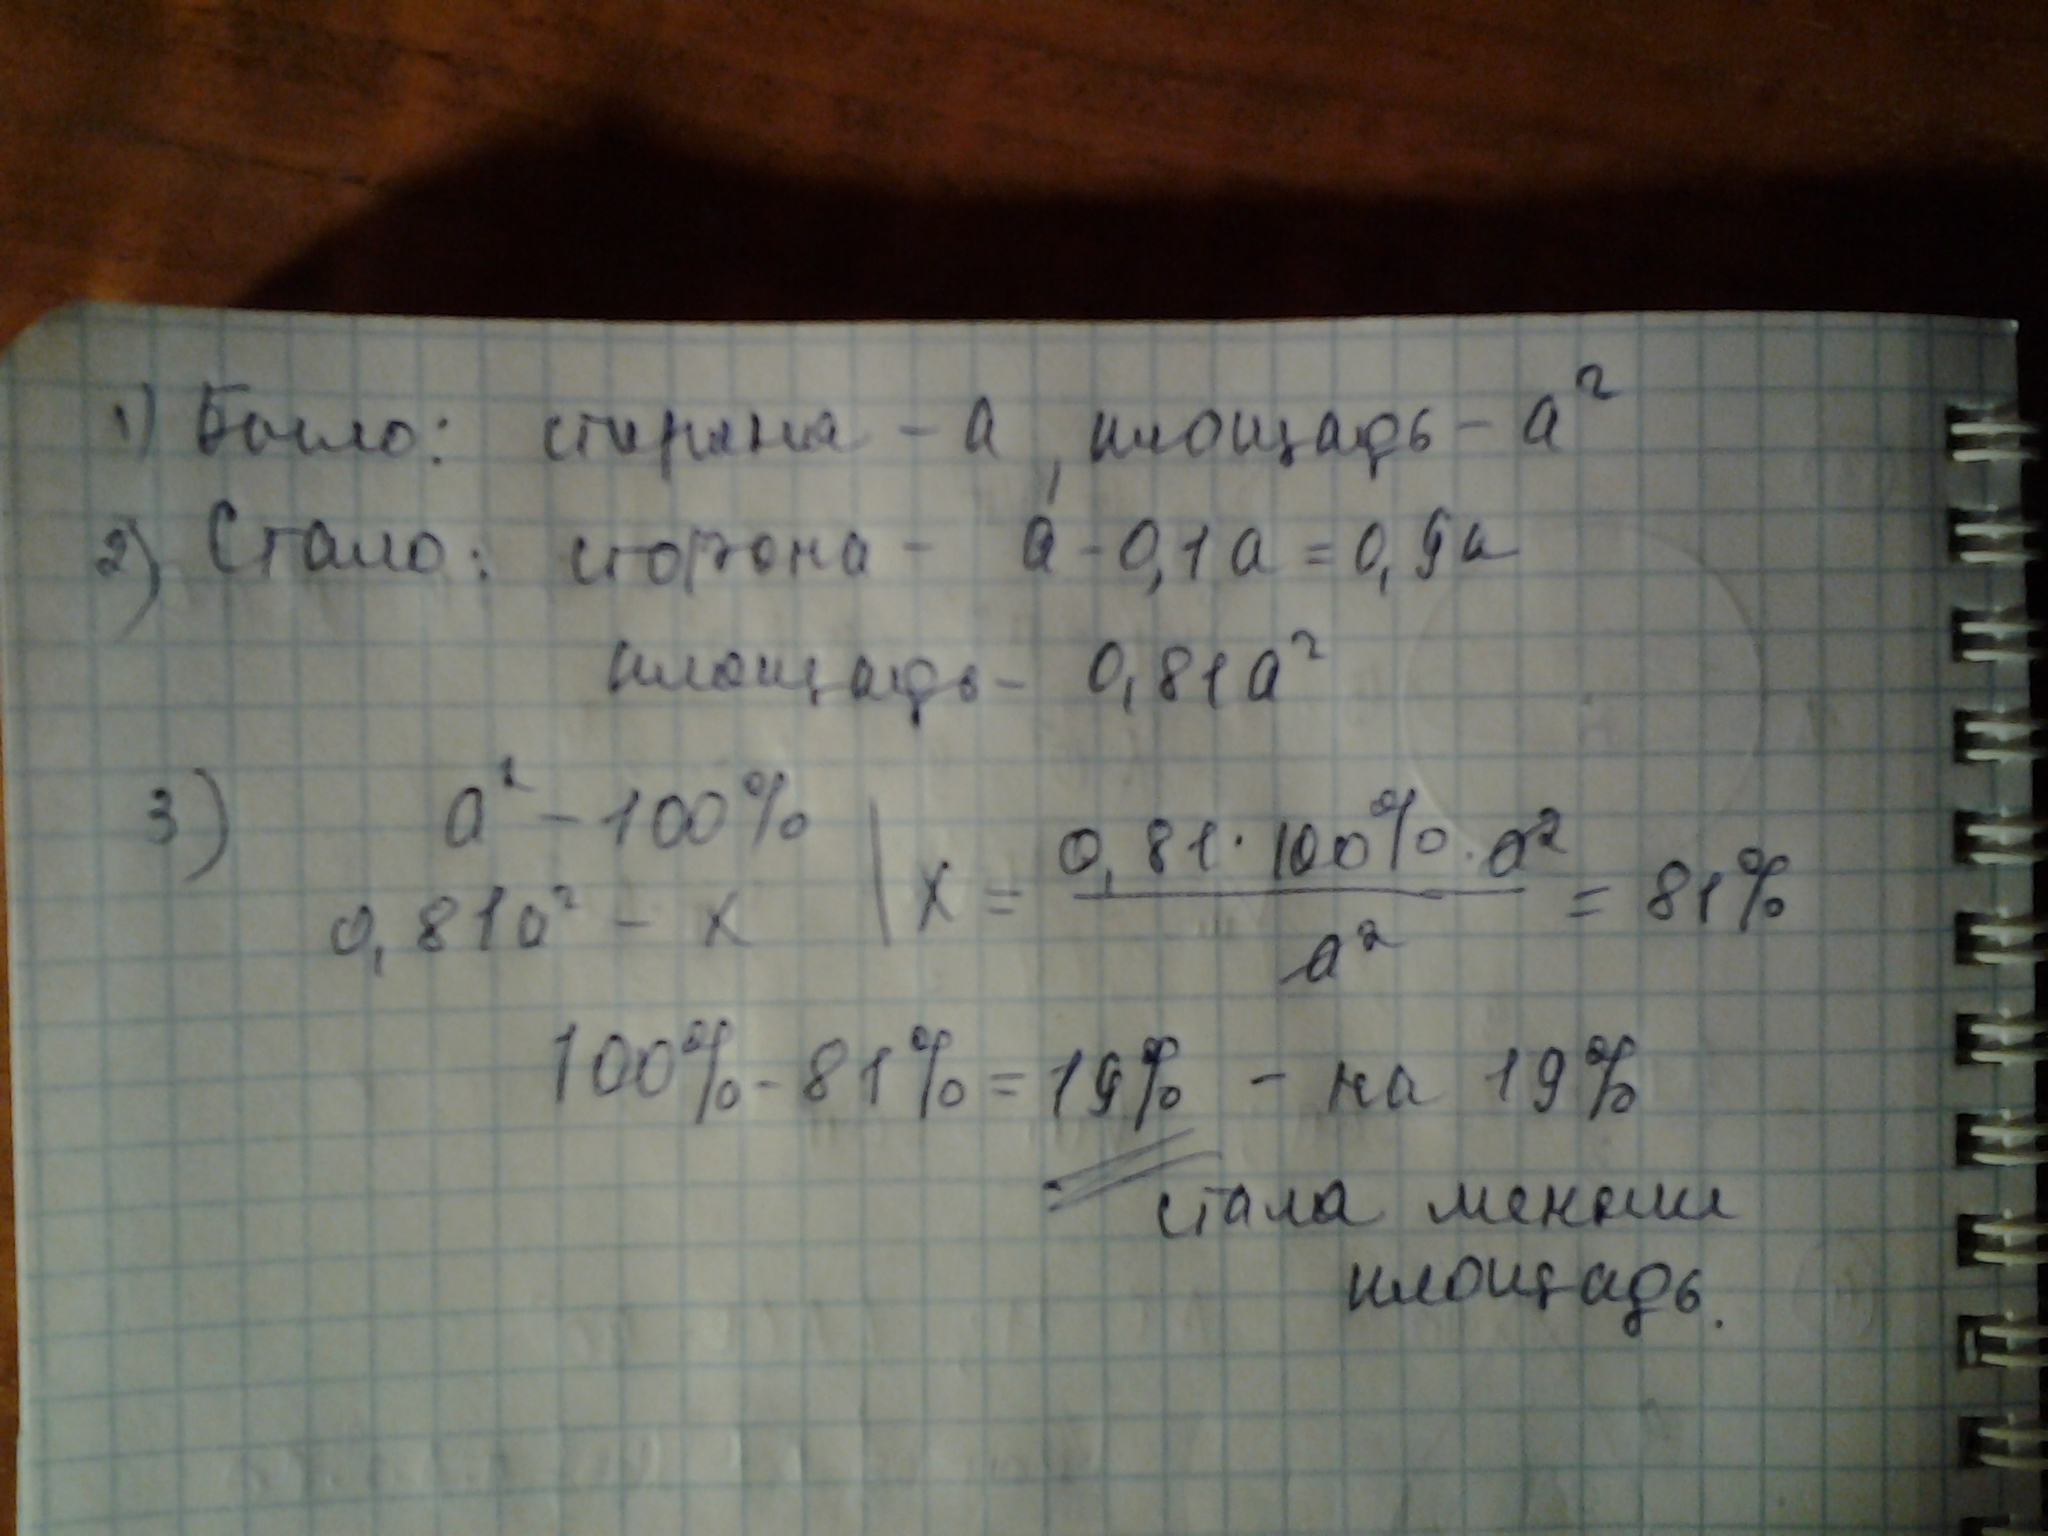 1) Было: сторона - a, площадь - a²
2) Стало: сторона - a - 0,1a = 0,9a
площадь - 0,81a²
3) a² - 100%
0,81a² - x | x = (0,81 · 100% · a²) / a² = 81%
100% - 81% = 19% - на 19%
стала меньше
площадь.